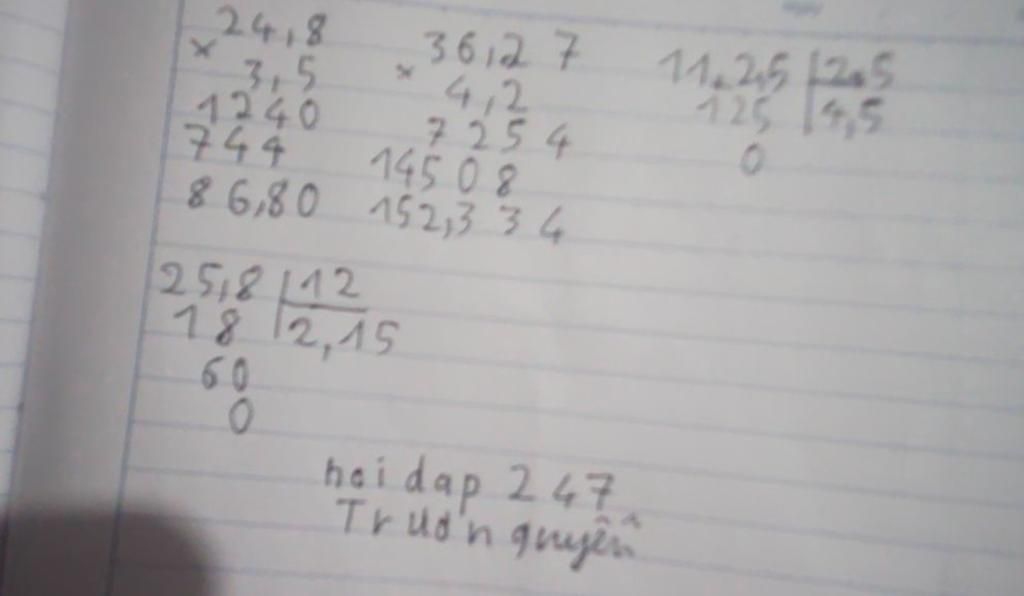 24,8
× 3,5
1240
744
86,80
36,27
× 4,2
7254
14508
152,334
11,2,5 | 2,5
125 | 4,5
0
25,8 | 12
18 | 2,15
60
0
hoidap 247